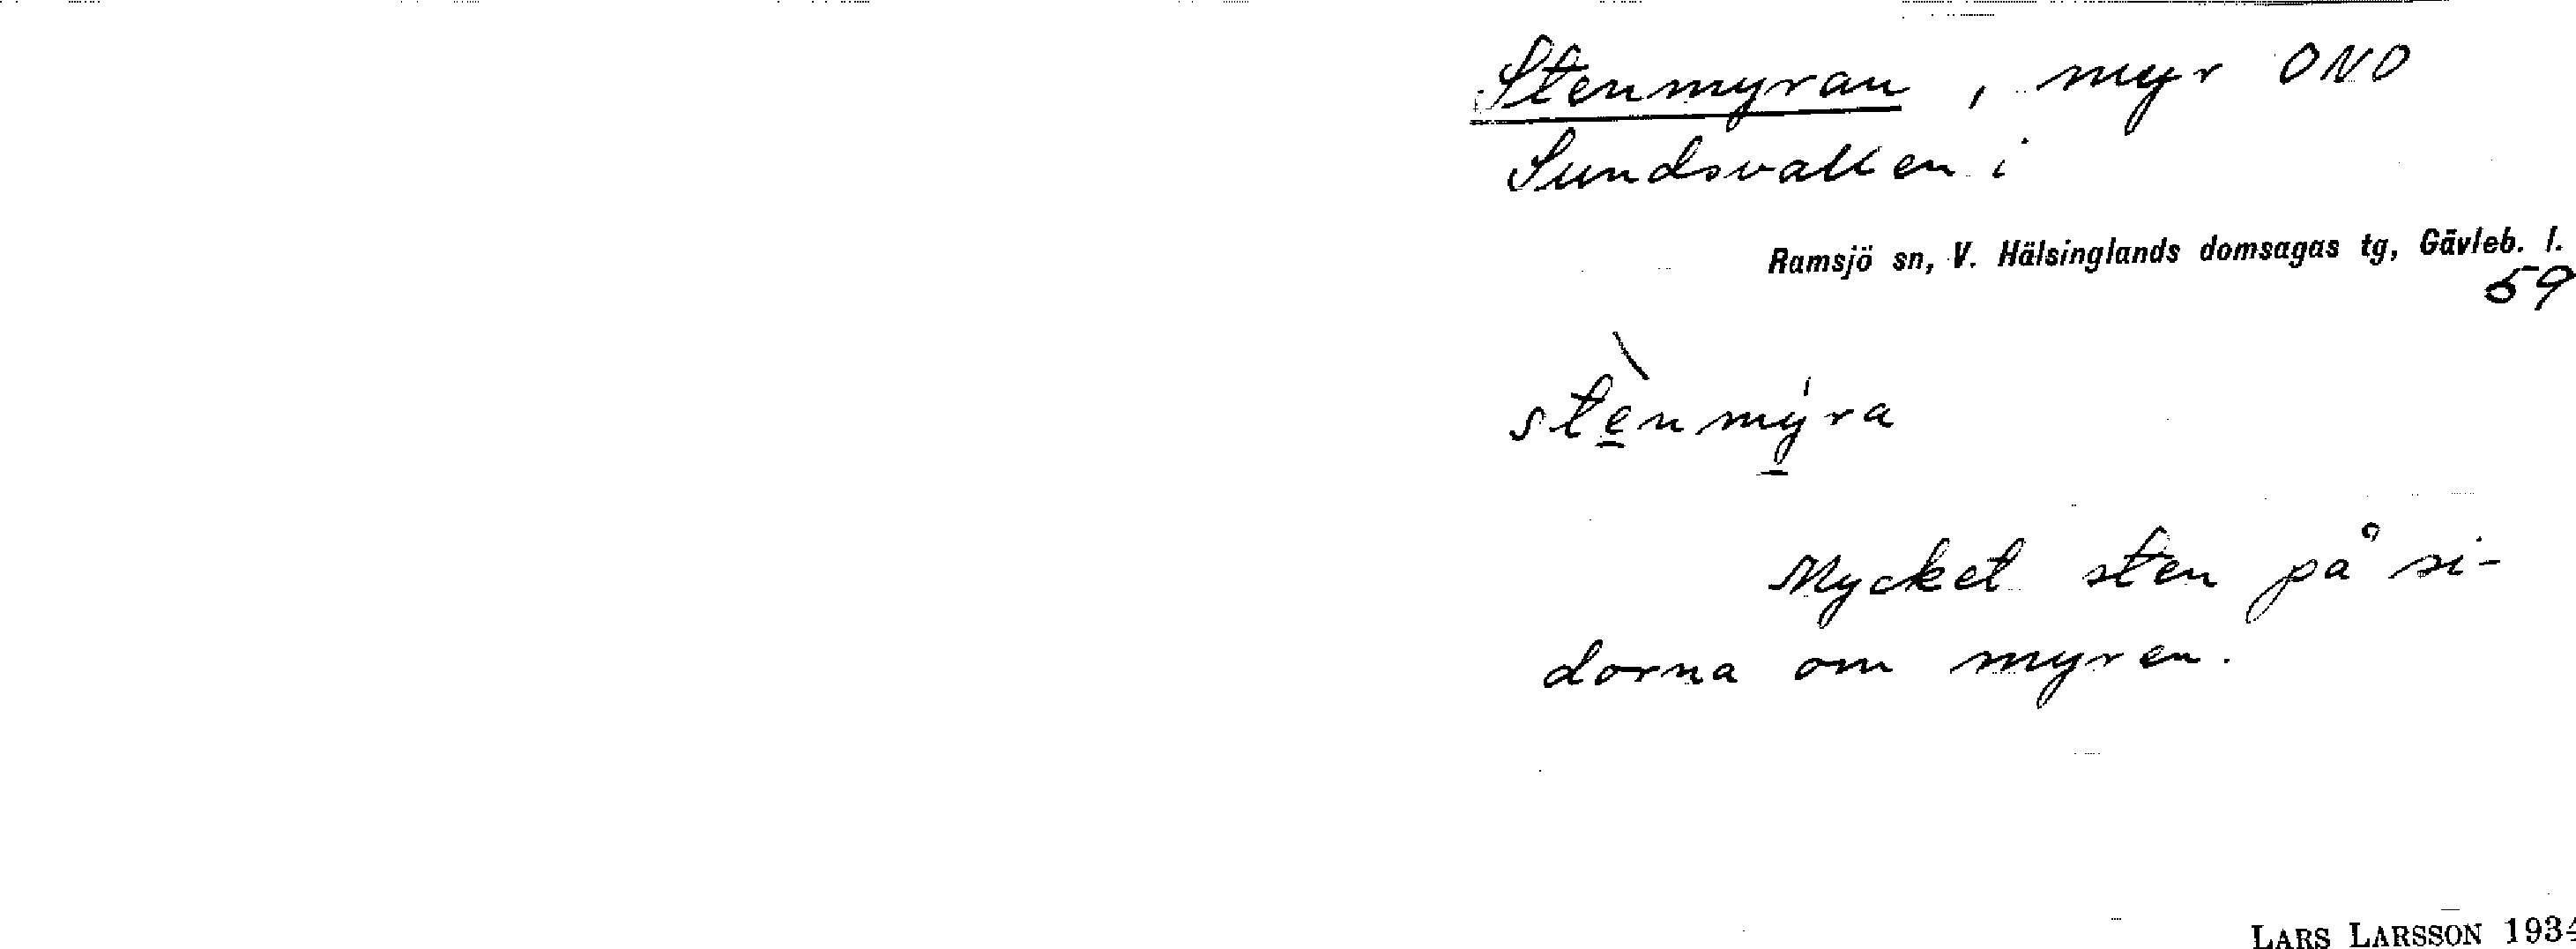 Stenmyran, myr ONO
Sundsvallen i
Ramsjö sn, V. Hälsinglands domsagas tg, Gävleb. l.
59
stènmýra
Mycket sten på si-
dorna om myren.
LARS LARSSON 1934